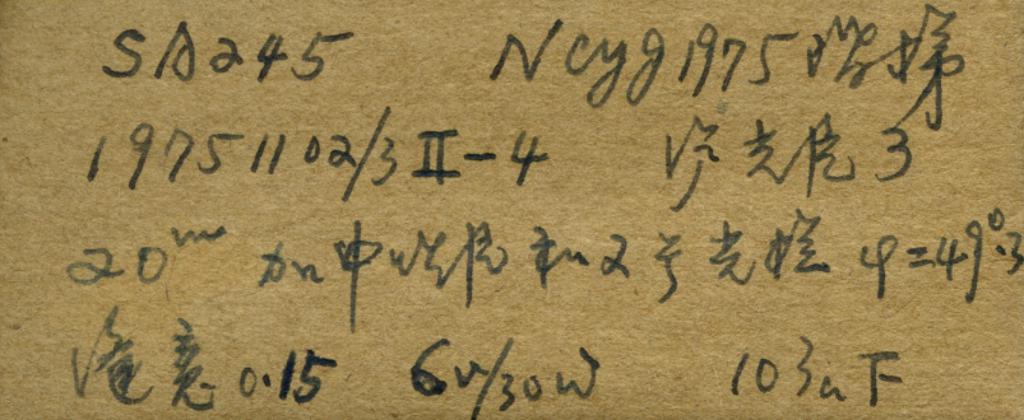 SA245 NCyg1975 阶梯
19751102/3 II-4 底片3
20ᵐ 加中性片和2号光栏 φ=49°.3
雾意0.15 6v/30W 103aF